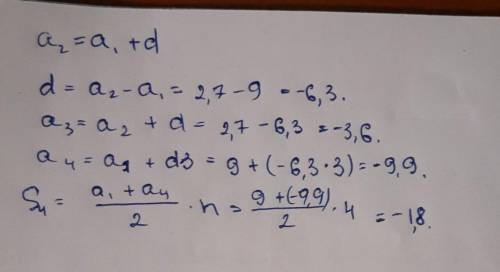 a₂ = a₁ + d
d = a₂ - a₁ = 2,7 - 9 = -6,3.
a₃ = a₂ + d = 2,7 - 6,3 = -3,6.
a₄ = a₁ + d3 = 9 + (-6,3·3) = -9,9.
S₄ = (a₁ + a₄)/2 · n = (9 + (-9,9))/2 · 4 = -1,8.